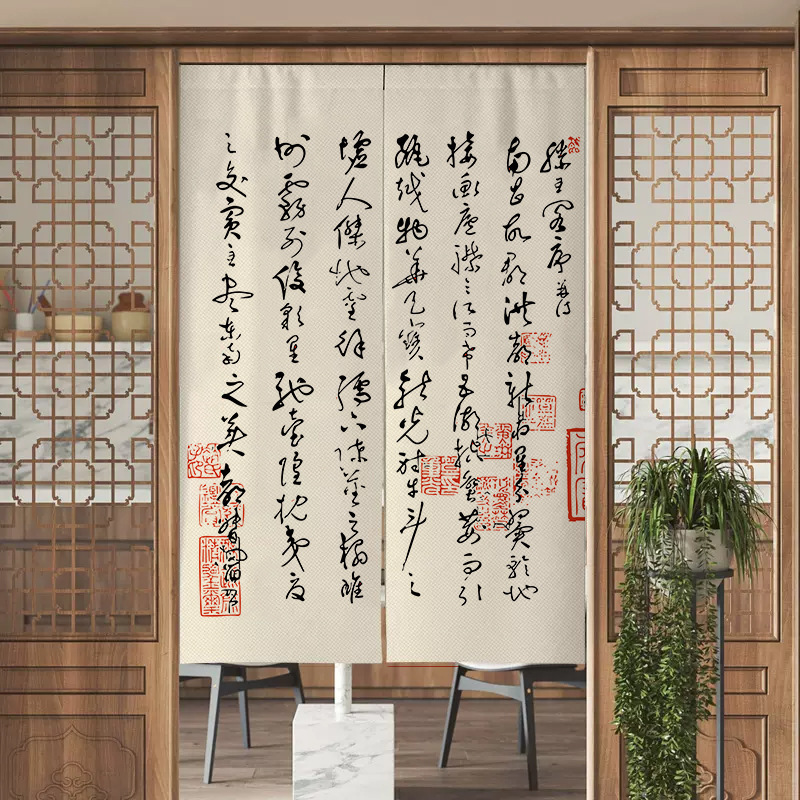 滕王閣序 并詩
南昌故郡洪都新府星分翼軫地
接衡廬襟三江而帶五湖控蠻荊而引
甌越物華天寶龍光射牛斗之
墟人傑地靈徐孺下陳蕃之榻雄
州霧列俊彩星馳臺隍枕夷夏
之交賓主盡東南之美都督閻公